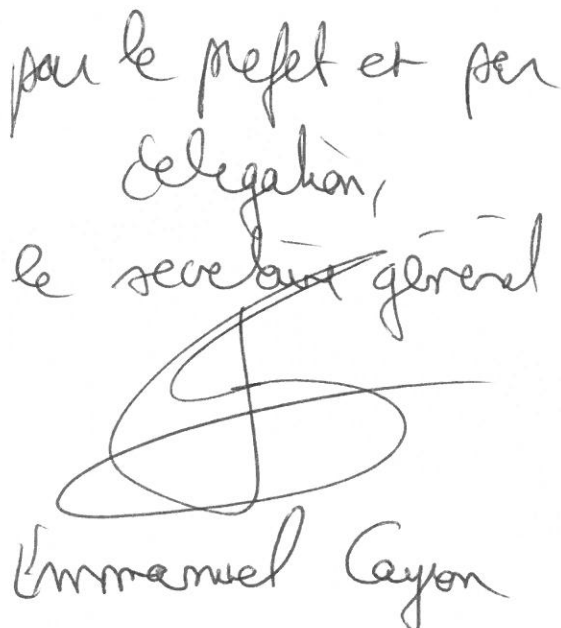 pour le prefet et par
delegation,
le secretaire général
Emmanuel Cayron